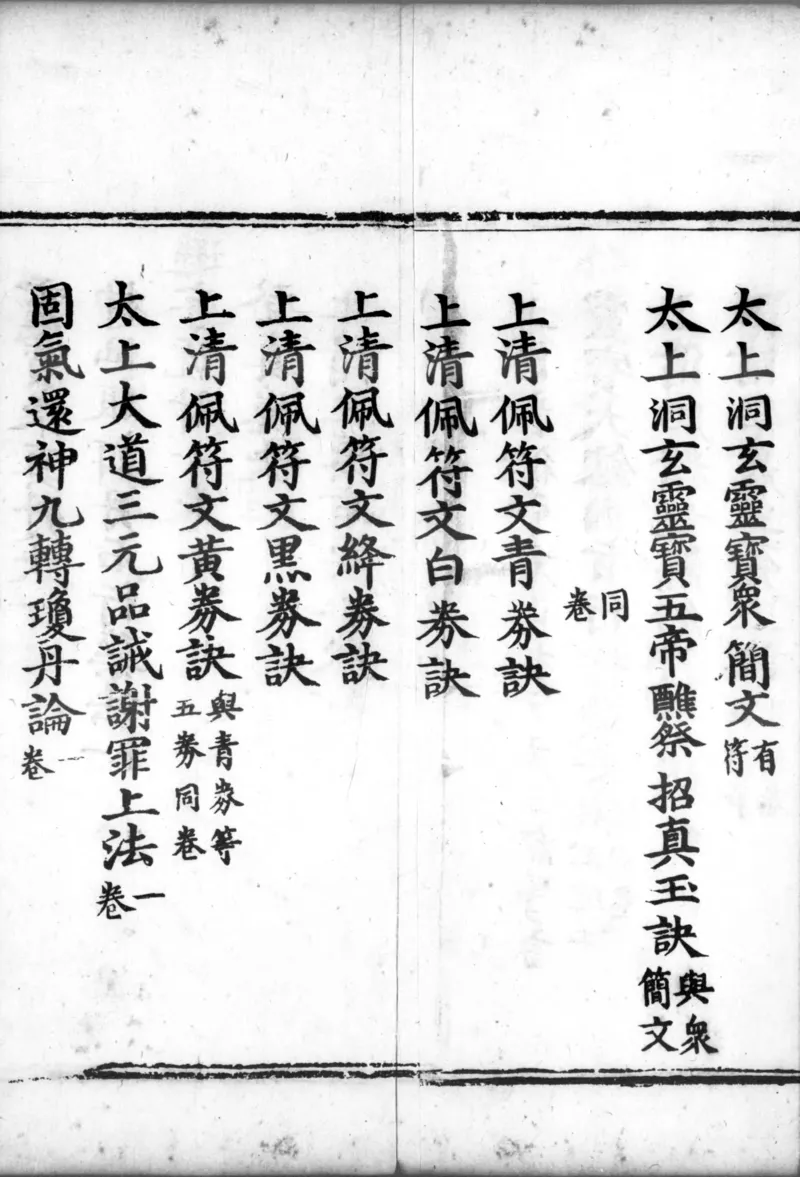 太上洞玄靈寶衆簡文有符
太上洞玄靈寶五帝醮祭招真玉訣與衆簡文
同卷
上清佩符文青券訣
上清佩符文白券訣
上清佩符文絳券訣
上清佩符文黑券訣
上清佩符文黃券訣與青券等五券同卷
太上大道三元品誡謝罪上法一卷
固氣還神九轉瓊丹論一卷